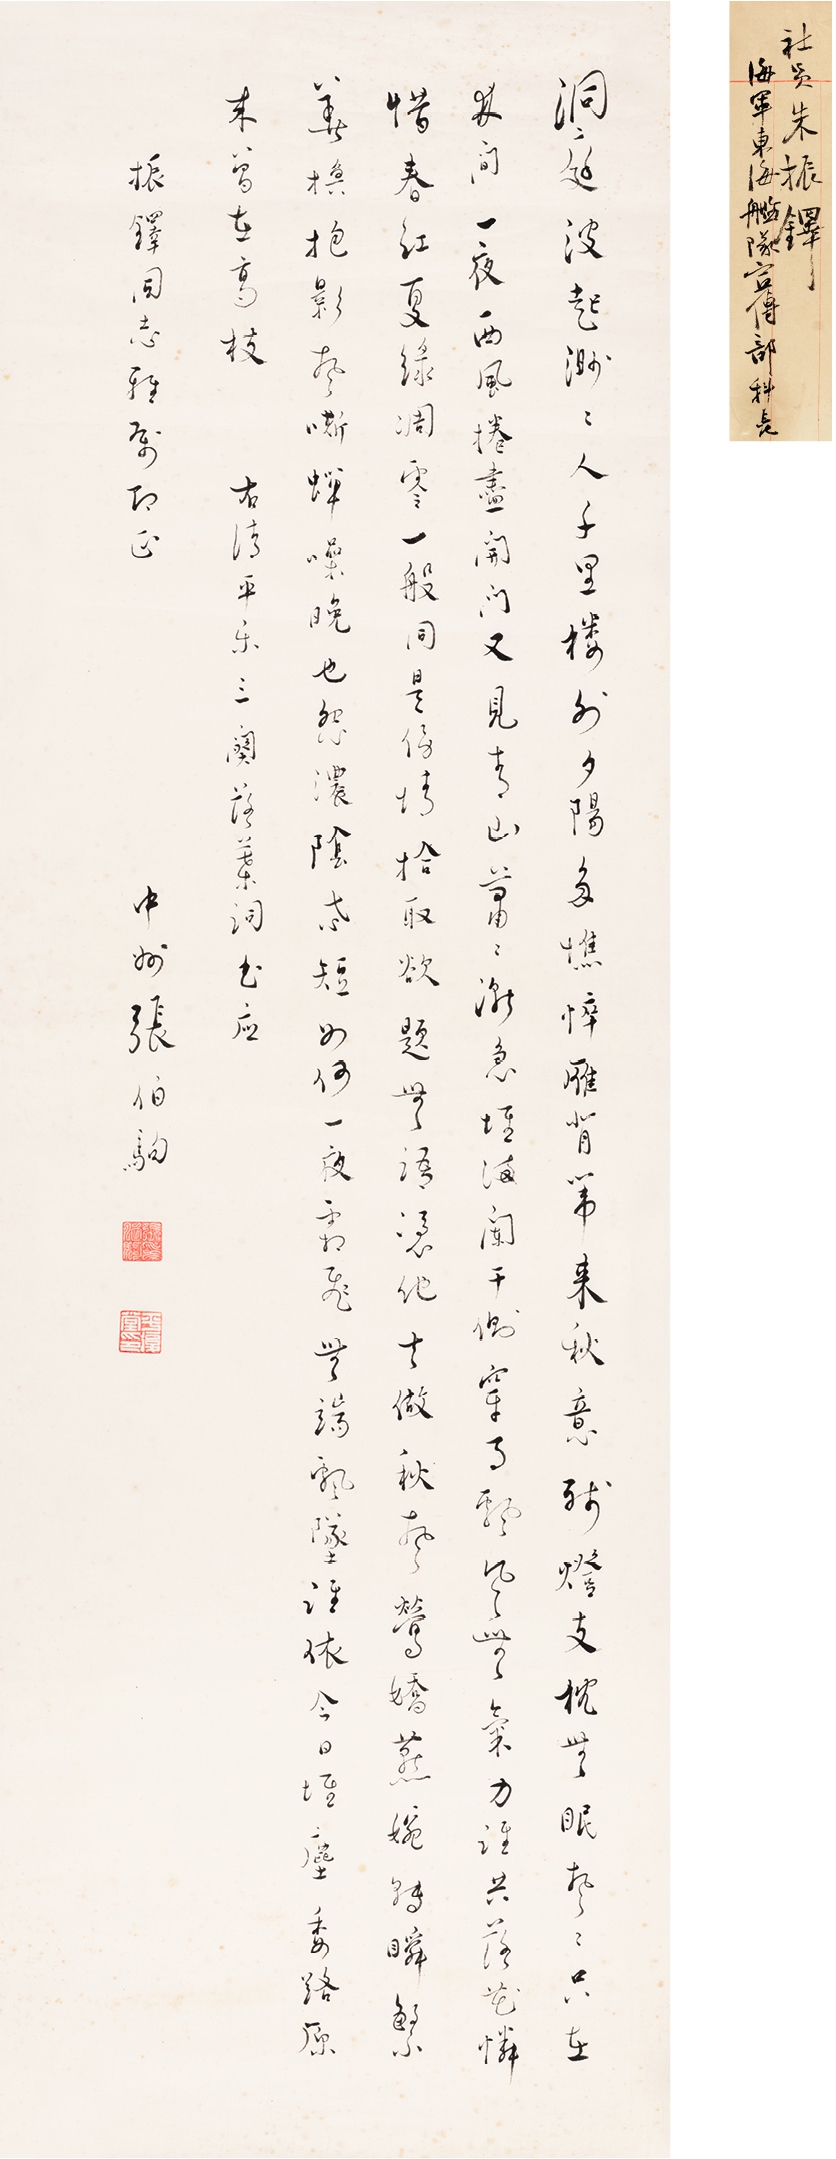 社员朱振鐸
海軍東海艦隊宣傳部科長
洞庭波起渺々人千里樓外夕陽多憔悴雁背帶來秋意殘燈支枕無眠聲々只在
林間一夜西風捲盡開門又見青山蕭々漸急堆滿闌干側飄無氣力誰共落花憐
惜春紅夏綠凋零一般同是傷情拾取欲題無語憑他去做秋聲鶯嬌燕婉轉瞬繁
華換抱影聲嘶蟬噪晚也怨濃陰短如何一夜霜飛無端飄墜誰依今日堆塵委路原
來曾在高枝 右清平樂三闋落葉詞書應
振鐸同志雅屬即正 中州張伯駒
平復堂印